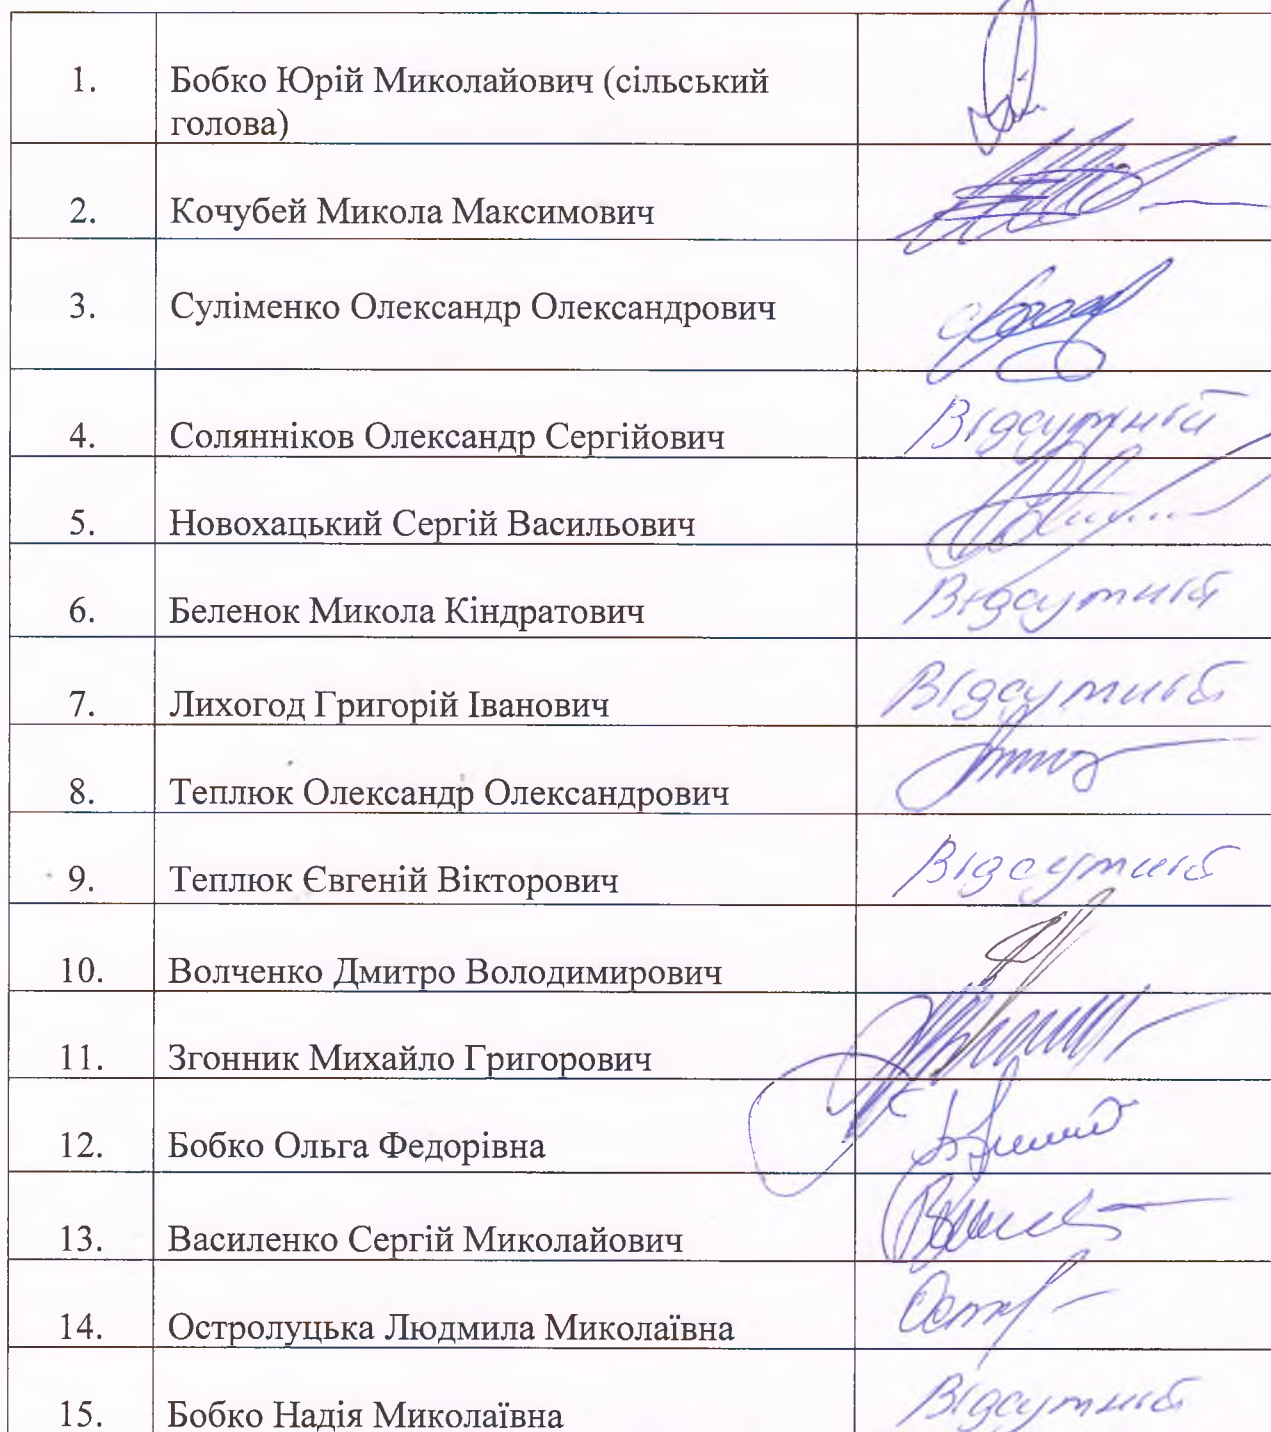 1. Бобко Юрій Миколайович (сільський
голова)
2. Кочубей Микола Максимович
3. Суліменко Олександр Олександрович
4. Солянніков Олександр Сергійович Відсутній
5. Новохацький Сергій Васильович
6. Беленок Микола Кіндратович Відсутній
7. Лихогод Григорій Іванович Відсутній
8. Теплюк Олександр Олександрович
9. Теплюк Євгеній Вікторович Відсутній
10. Волченко Дмитро Володимирович
11. Згонник Михайло Григорович
12. Бобко Ольга Федорівна
13. Василенко Сергій Миколайович
14. Остролуцька Людмила Миколаївна
15. Бобко Надія Миколаївна Відсутній